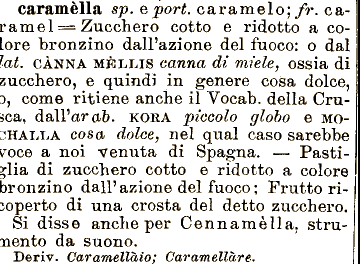 caramèlla sp. e port. caramelo; fr. ca-
ramel = Zucchero cotto e ridotto a co-
lore bronzino dall'azione del fuoco: o dal
lat. CÀNNA MÈLLIS canna di miele, ossia di
zucchero, e quindi in genere cosa dolce,
o, come ritiene anche il Vocab. della Cru-
sca, dall'arab. KORA piccolo globo e MO-
CHALLA cosa dolce, nel qual caso sarebbe
voce a noi venuta di Spagna. — Pasti-
glia di zucchero cotto e ridotto a colore
bronzino dall'azione del fuoco; Frutto ri-
coperto di una crosta del detto zucchero.
Si disse anche per Cennamèlla, stru-
mento da suono.
Deriv. Caramellàio; Caramellàre.